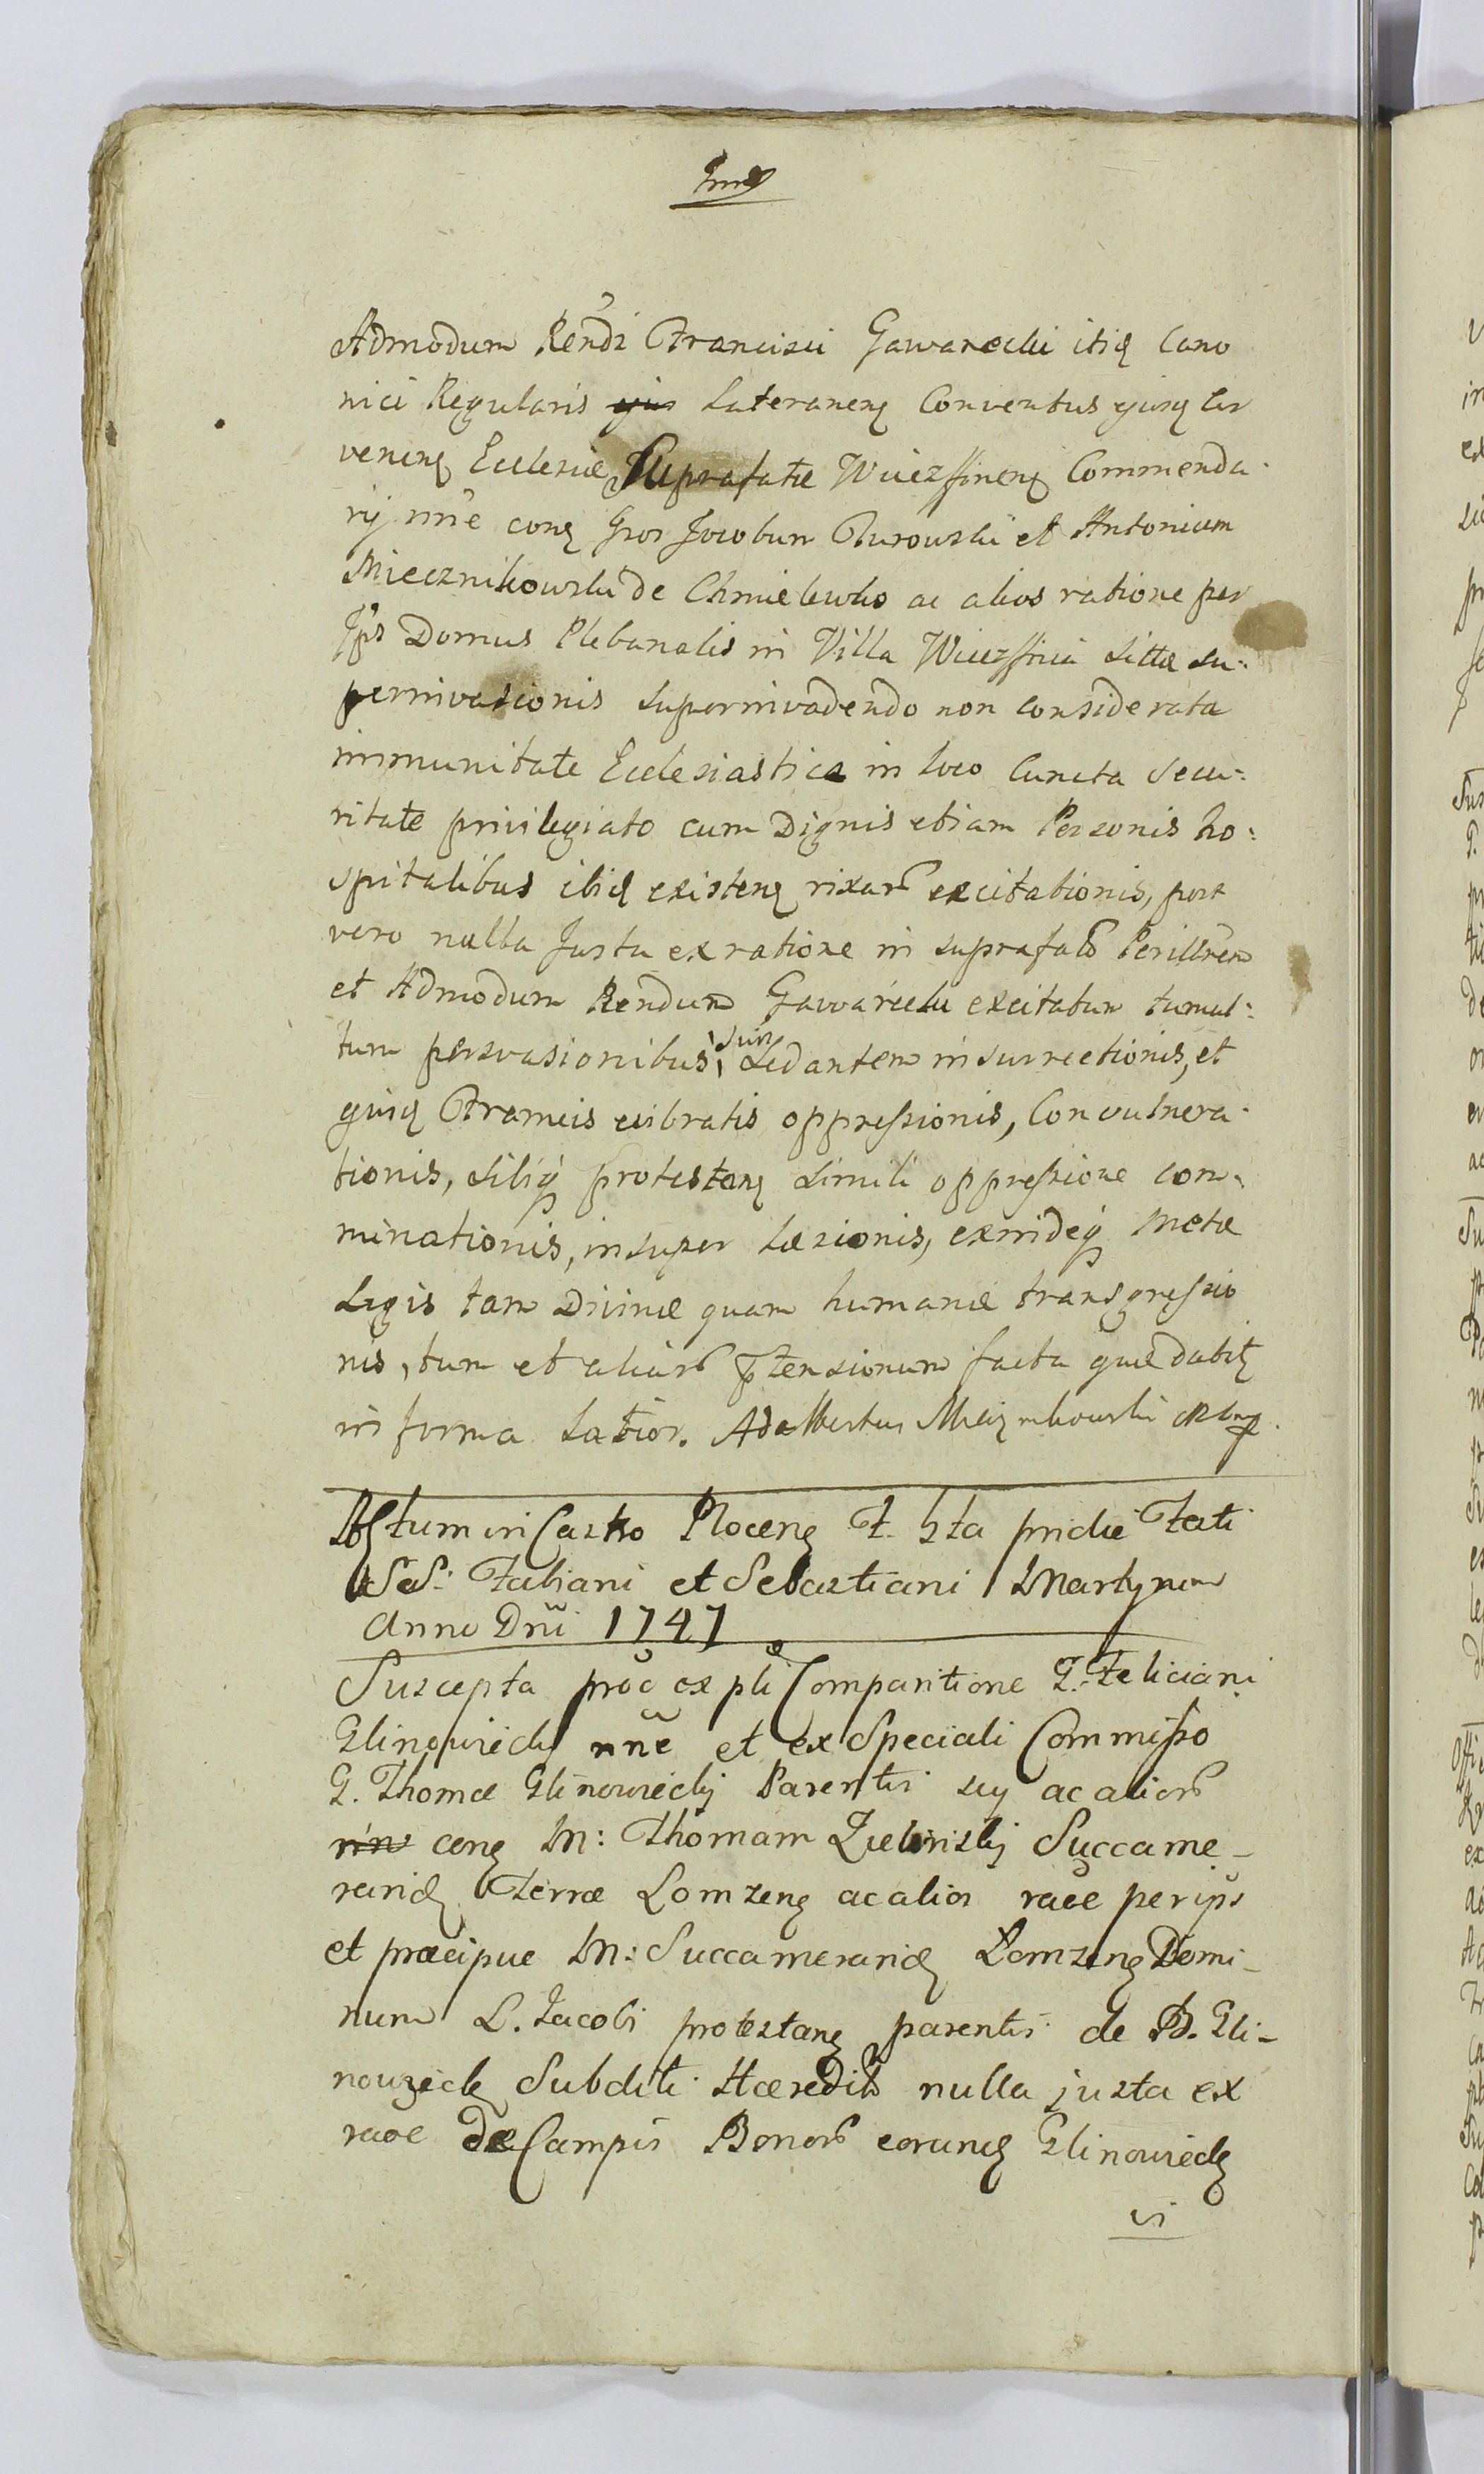 Admodum Rendi Francisci Gawarecki itid Cano
nici Regularis Lateranen Conventus ejusq Cer
venen Ecclesiæ Suprafatæ Wuezffinen Commenda-
rij nne con Gros Jacobum Turowski et Antonium
Miecznikowski de Chmielewko ac alios ratione per
Ips Domus Plebanalis in Villa sittæ su-
perinvasionis superinvadendo non considerata
immunitate Ecclesiastica in loco cuncta secu-
ritate privilegiato cum Dignis etiam Personis ho-
spitalibus ibid existen rixar excitationis, post
vero nulla Justa ex ratione in suprafat Perillrem
et Admodum Rendum Gawarecki excitatum tumul-
tum persvasionibus suis sedantem insurrectionis, et
ejusd Frameis evibratis oppressionis, Convulnera-
tionis, sibiq protestan simili oppressione com-
minationis, insuper Læsionis, exindeq Metæ
Legis tam Divinæ quam humanæ transgressio
nis, tum et aliar ptensionum facta quæ dabit
in forma Latior. Adalbertus Miecznikowski mp
Actum in Castro Plocen F. 5ta pridie Festi
SS. Fabiani et Sebastiani Martyrum
Anno Dni 1747
Suscepta proc ex pli Comparitione G. Feliciani
Glinowiecky nne et ex Speciali Commisso
G. Thomæ Glinowieckij Parentis suy ac alior
con M: Thomam Zielinskij Succame-
rarid Terræ Lomzen ac alios raoe per ips
et præcipue M: Succamerarid Lomzen Domi-
num L. Jacobi protestan parentis de B. Gli-
nowieck Subditi Hæredit nulla justa ex
raoe de Campis Bonor eorund Glinowieck
vi